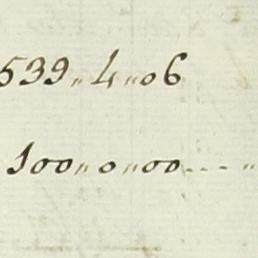 539 〃 4 〃 06
100 〃 0 〃 00 - - - 〃